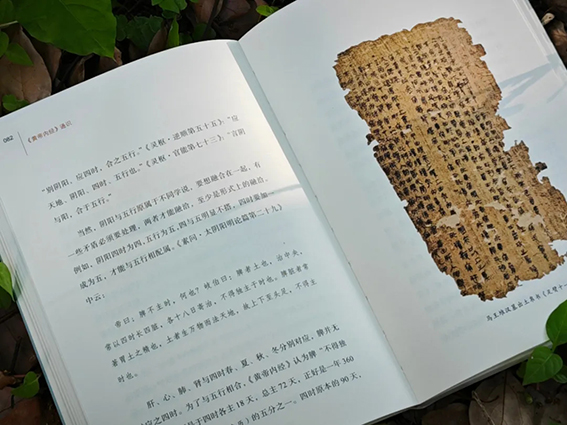 062
《黄帝内经》通识
“别阴阳，应四时，合之五行。”（《灵枢·逆顺第五十五》）“应
天地、阴阳、四时、五行也。”（《灵枢·官能第七十三》）“言阴
与阳，合于五行。”
当然，阴阳与五行原属于不同学说，要想融合在一起，有
一些矛盾必须要处理，两者才能融洽，至少是形式上的融洽。
例如，阴阳四时为四，五行为五，四与五明显不搭，四时
成为五，才能与五行相配属。《素问·太阴阳明论篇第二十九》
中云：
帝曰：脾不主时，何也？岐伯曰：脾者土也，治中央，
常以四时长四脏，各十八日寄治，不得独主于时也。脾脏者常
著胃土之精也，土者生万物而法天地，故上下至头足，不得主
时也。
肝、心、肺、肾与四时春、夏、秋、冬分别对应，脾开无
应之四时。为了与五行相合，《黄帝内经》认为脾“不得独
于四时各主18天，总主72天，正好是一年360
的五分之一。四时原本的90天，
马王堆汉墓出土帛书《足臂十一